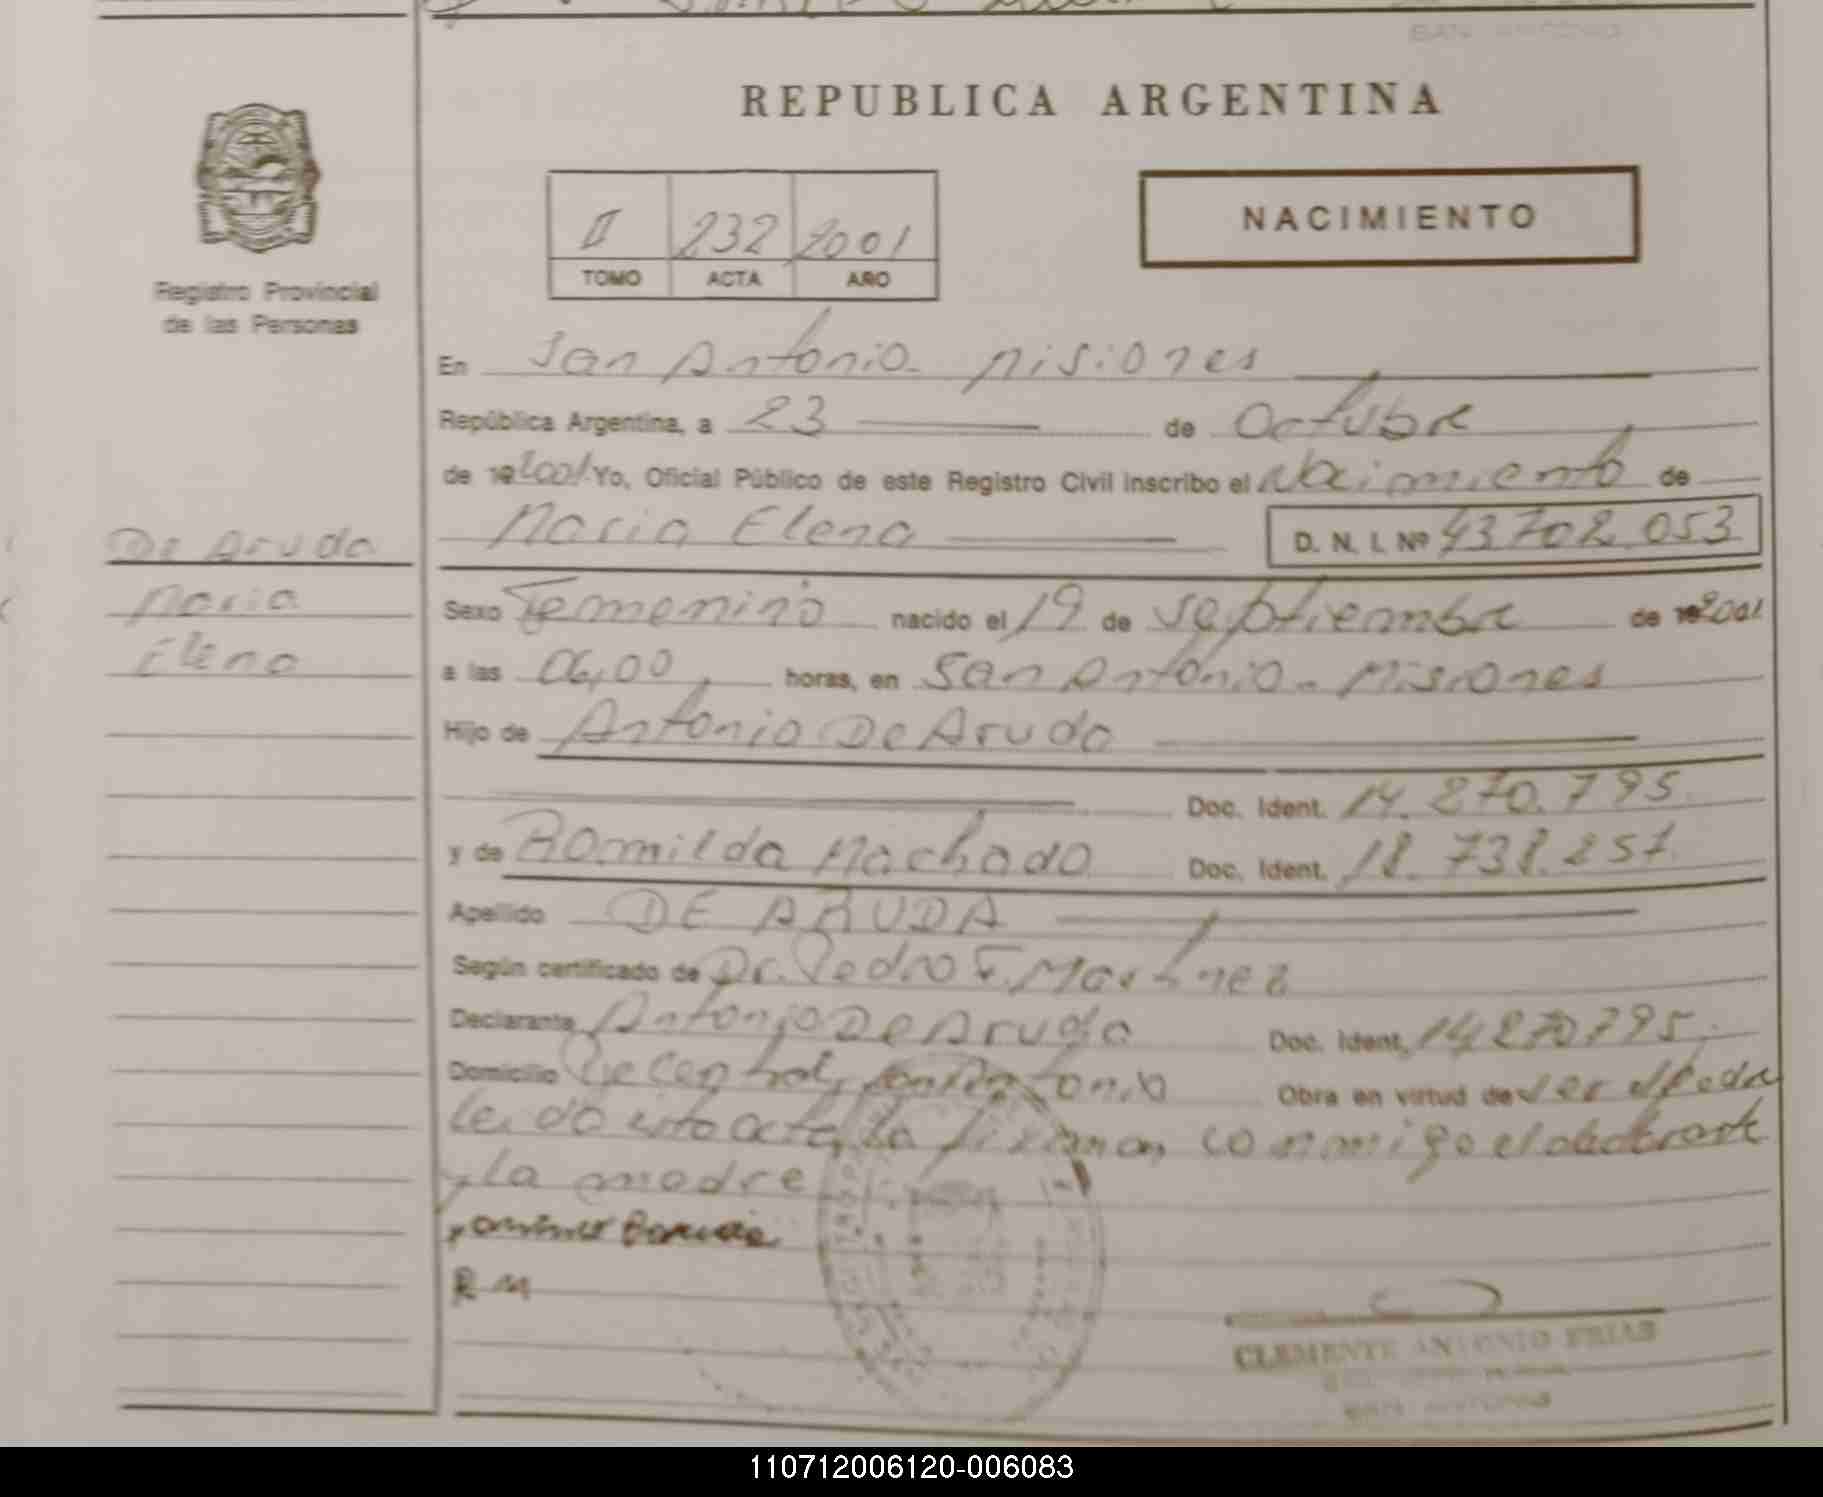 REPUBLICA ARGENTINA
NACIMIENTO
II 232 2001
TOMO ACTA AÑO
Registro Provincial
de las Personas
En San Antonio - Misiones
República Argentina, a 23 de Octubre
de 19 2001 Yo, Oficial Público de este Registro Civil inscribo el Nacimiento de
Maria Elena D. N. I. Nº 43702.053
De Aruda
Maria
Elena
Sexo Femenino nacido el 19 de Septiembre de 19 2001
a las 06,00 horas, en San Antonio - Misiones
Hijo de Antonio De Aruda
Doc. Ident. 14.270.795
y de Romilda Machado Doc. Ident. 18.738.257
Apellido DE ARUDA
Según certificado de Dr. Pedro F. Martinez
Declarante Antonio De Aruda Doc. Ident. 14270795
Domicilio San Antonio Obra en virtud de ser el Padre
Leida esta acta, la firman conmigo el declarante
y La madre
R M
CLEMENTE ANTONIO FRIAS
SAN ANTONIO
110712006120-006083